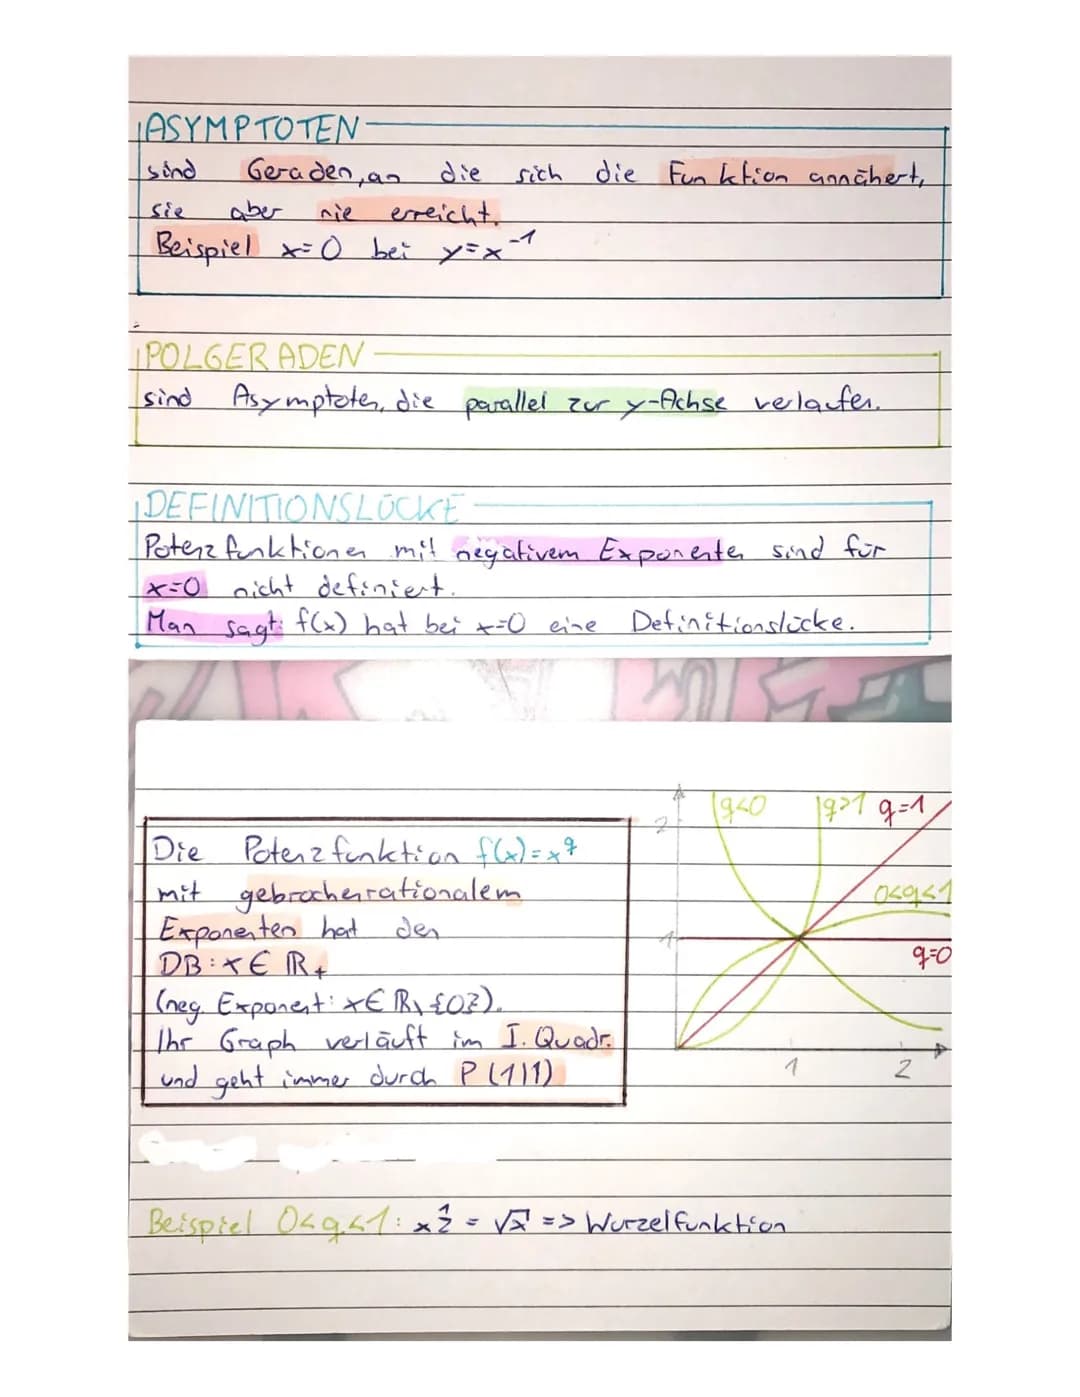 ASYMPTOTEN
sind Geraden, an die sich die Funktion annähert,
sie aber nie erreicht.
Beispiel x=0 bei y=x⁻¹
POLGERADEN
sind Asymptoten, die parallel zur y-Achse verlaufen.
DEFINITIONSLÜCKE
Potenzfunktionen mit negativem Exponenten sind für
x=0 nicht definiert.
Man sagt: f(x) hat bei x=0 eine Definitionslücke.
q<0 q>1 q=1
2
Die Potenzfunktion f(x)=x^q
mit gebrochenrationalem
0<q<1
Exponenten hat den
1
q=0
DB: x∈ℝ₊
(neg. Exponent: x∈ℝ\{0}).
Ihr Graph verläuft im I. Quadr.
und geht immer durch P(1|1)
1 2
Beispiel 0<q<1: x^½ = √x => Wurzelfunktion